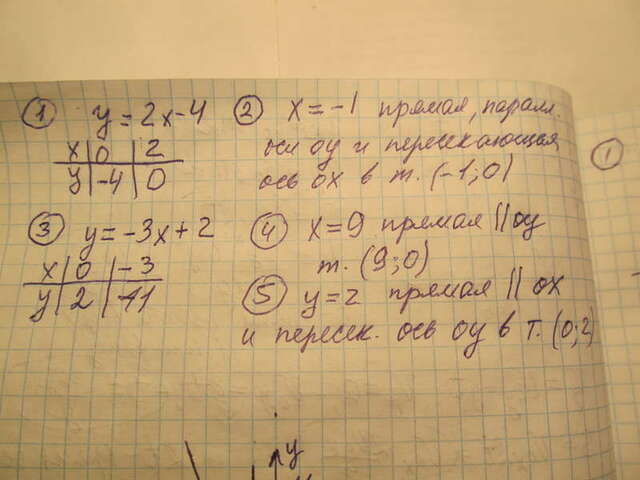 ① y = 2x - 4
x | 0 | 2
y | -4 | 0
② x = -1 прямая, паралл.
оси оу и пересекающая
ось ох в т. (-1; 0)
③ y = -3x + 2
x | 0 | -3
y | 2 | -11
④ x = 9 прямая || оу
т. (9; 0)
⑤ y = 2 прямая || ох
и пересек. ось оу в т. (0; 2)
y
①